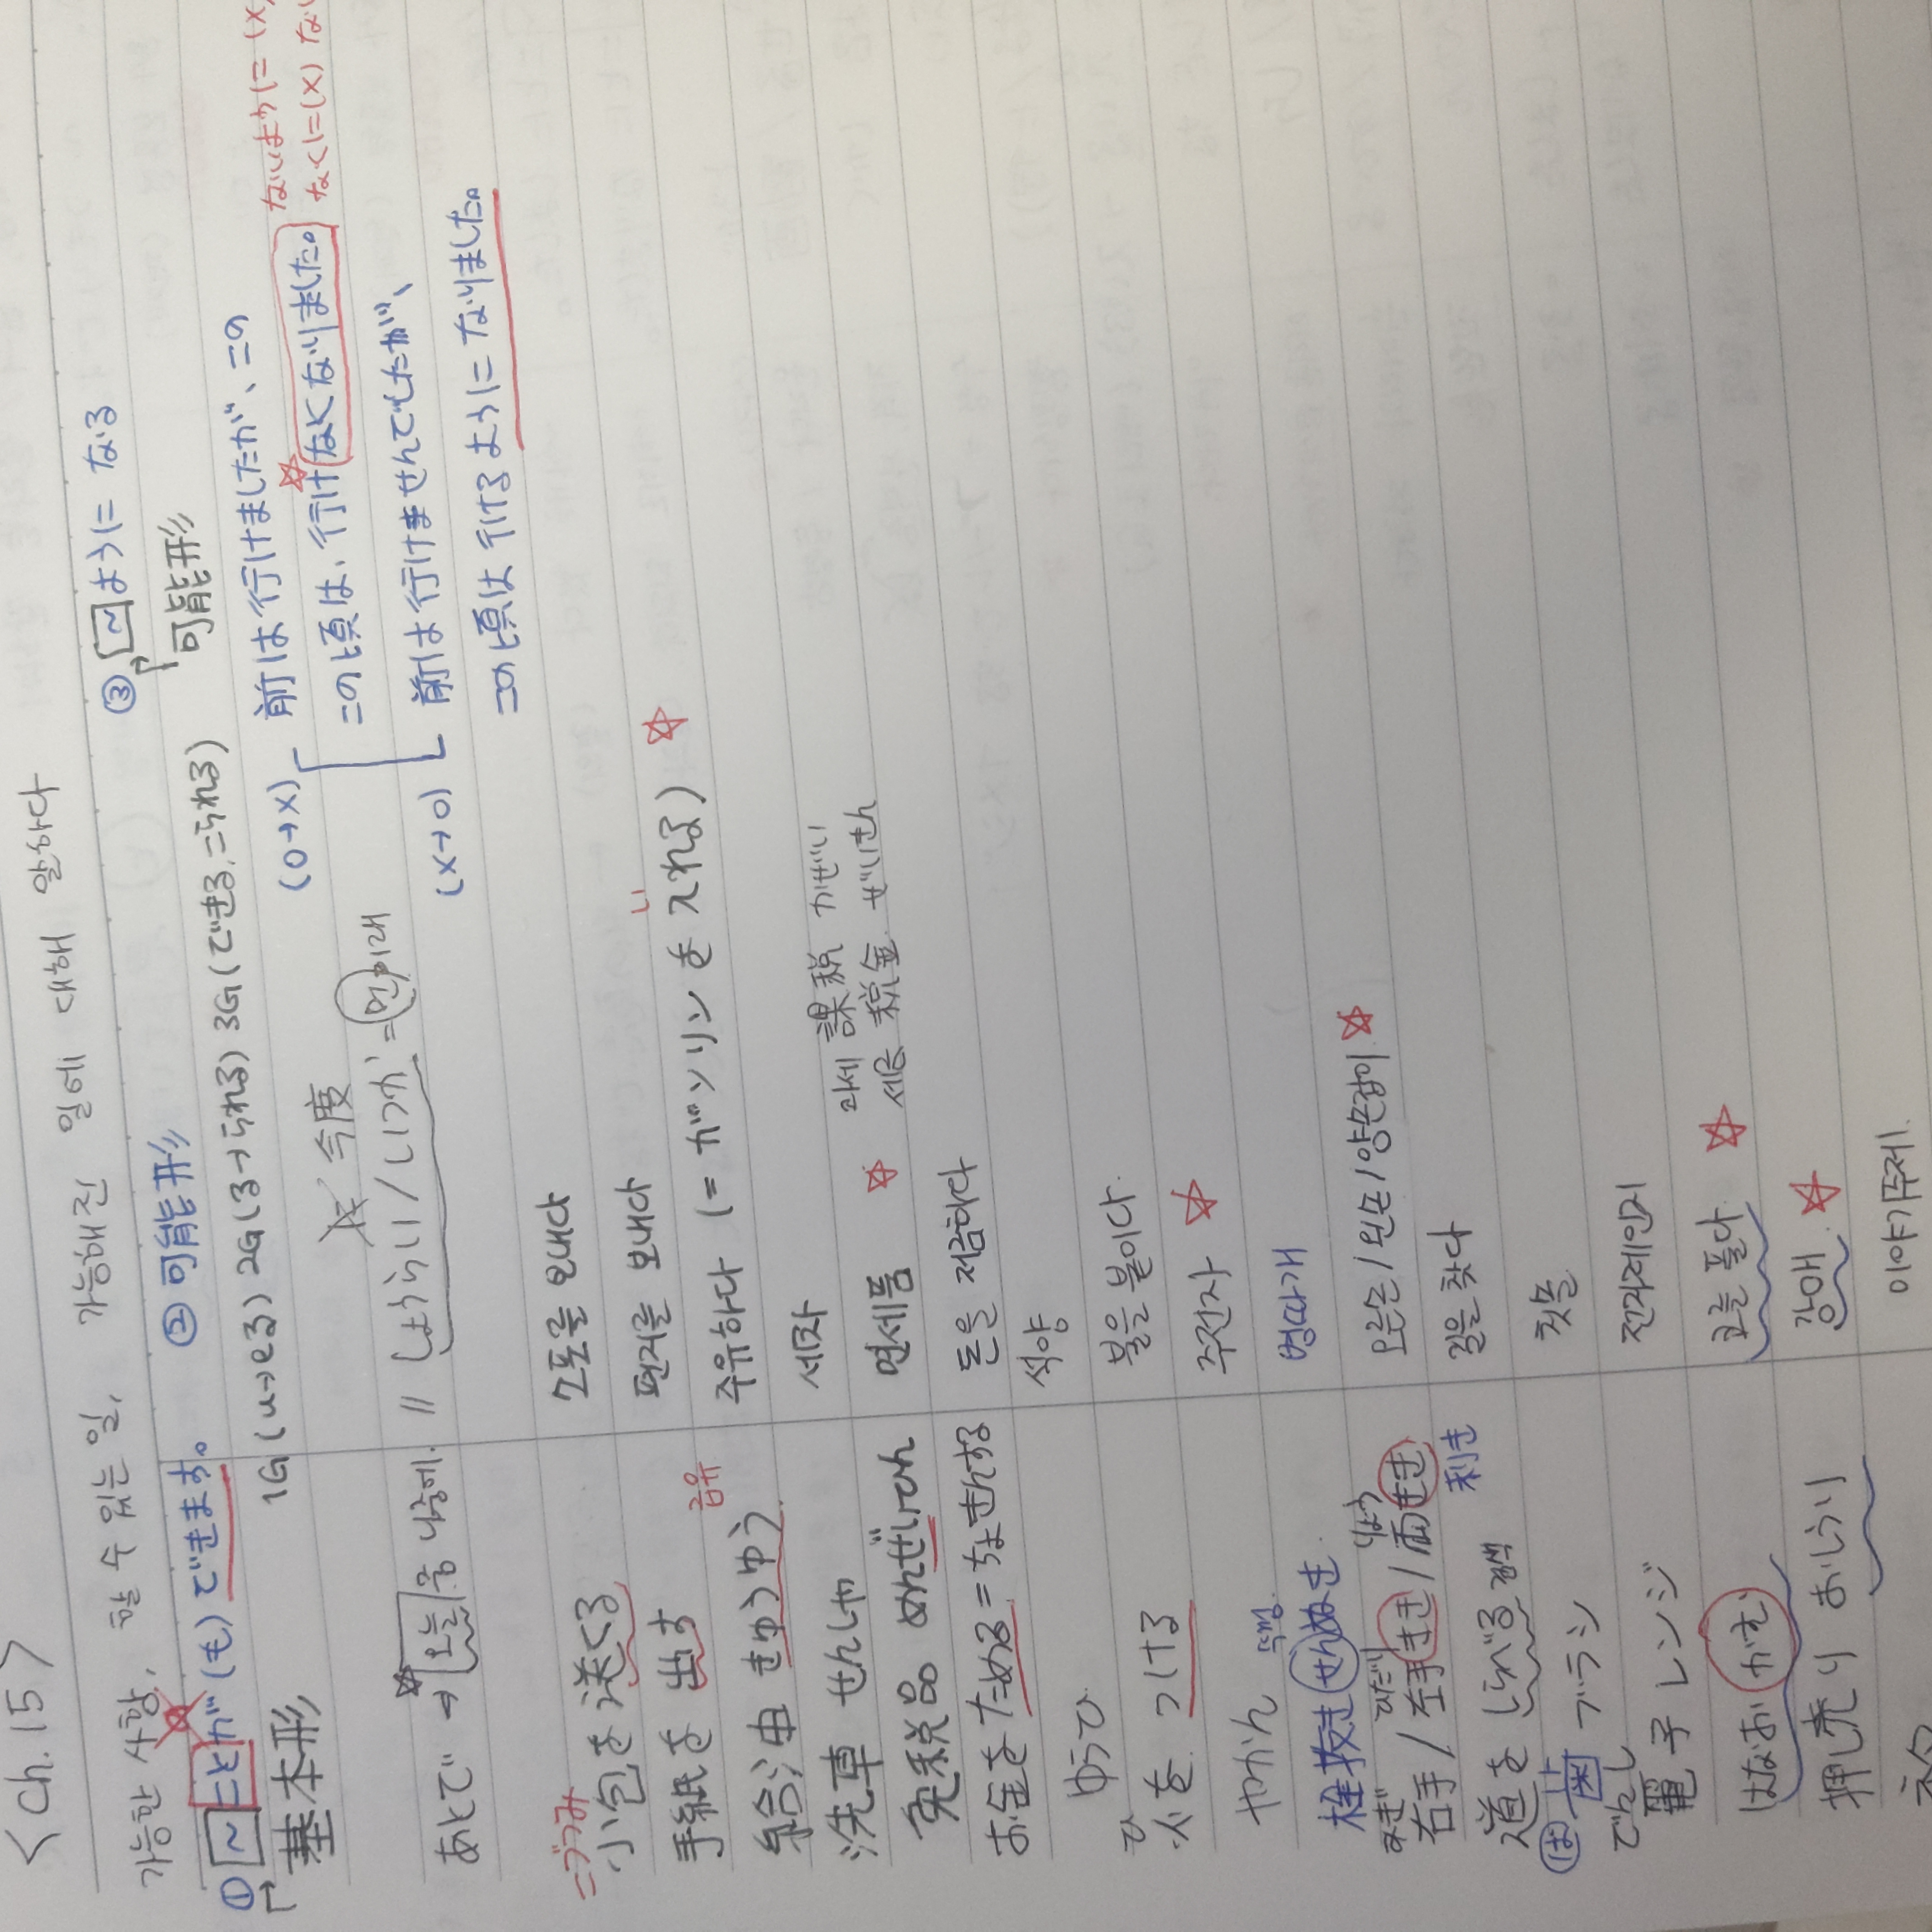 <Ch.15>
가능한 사항, 할 수 있는 일, 가능해진 일에 대해 말하다
① ~ ことが(も)できます。 ② 可能形 ③ ~ ように なる
基本形 1G(u→eる) 2G(る→られる) 3G(できる, こられる) 可能形
今度
(O→X) 前は行けましたが、この
この頃は、行けなくなりました。
ないように (X)
なくに (X)
(X→O) 前は行けませんでしたが、
この頃は行けるようになりました。
あとで → 오늘 중 나중에. // しょうらい / いつか = 먼 미래
こづつみ
小包を送くる 소포를 보내다
手紙を出す 편지를 보내다
給油 きゅうゆ 급유 주유하다 (=ガソリンを入れる)
い
洗車 せんしゃ 세차
과세 課税 かぜい
免税品 めんぜいひん 면세품
세금 税金 ぜいきん
お金をためる=ちょきんする 돈을 저금하다
ゆうひ 석양
ひ
火を つける 불을 붙이다.
やかん 주전자
栓抜き せんぬき 병따개
みぎ ひだり りょう
右手 / 左手きき / 両きき 오른손 / 왼손 / 양손잡이
利き
道を しらべる 검색 길을 찾다
は
歯ブラシ 칫솔
でんし
電子レンジ 전자레인지
はなお かむ 코를 풀다
押し売り おしうり 강매
이야기 주제